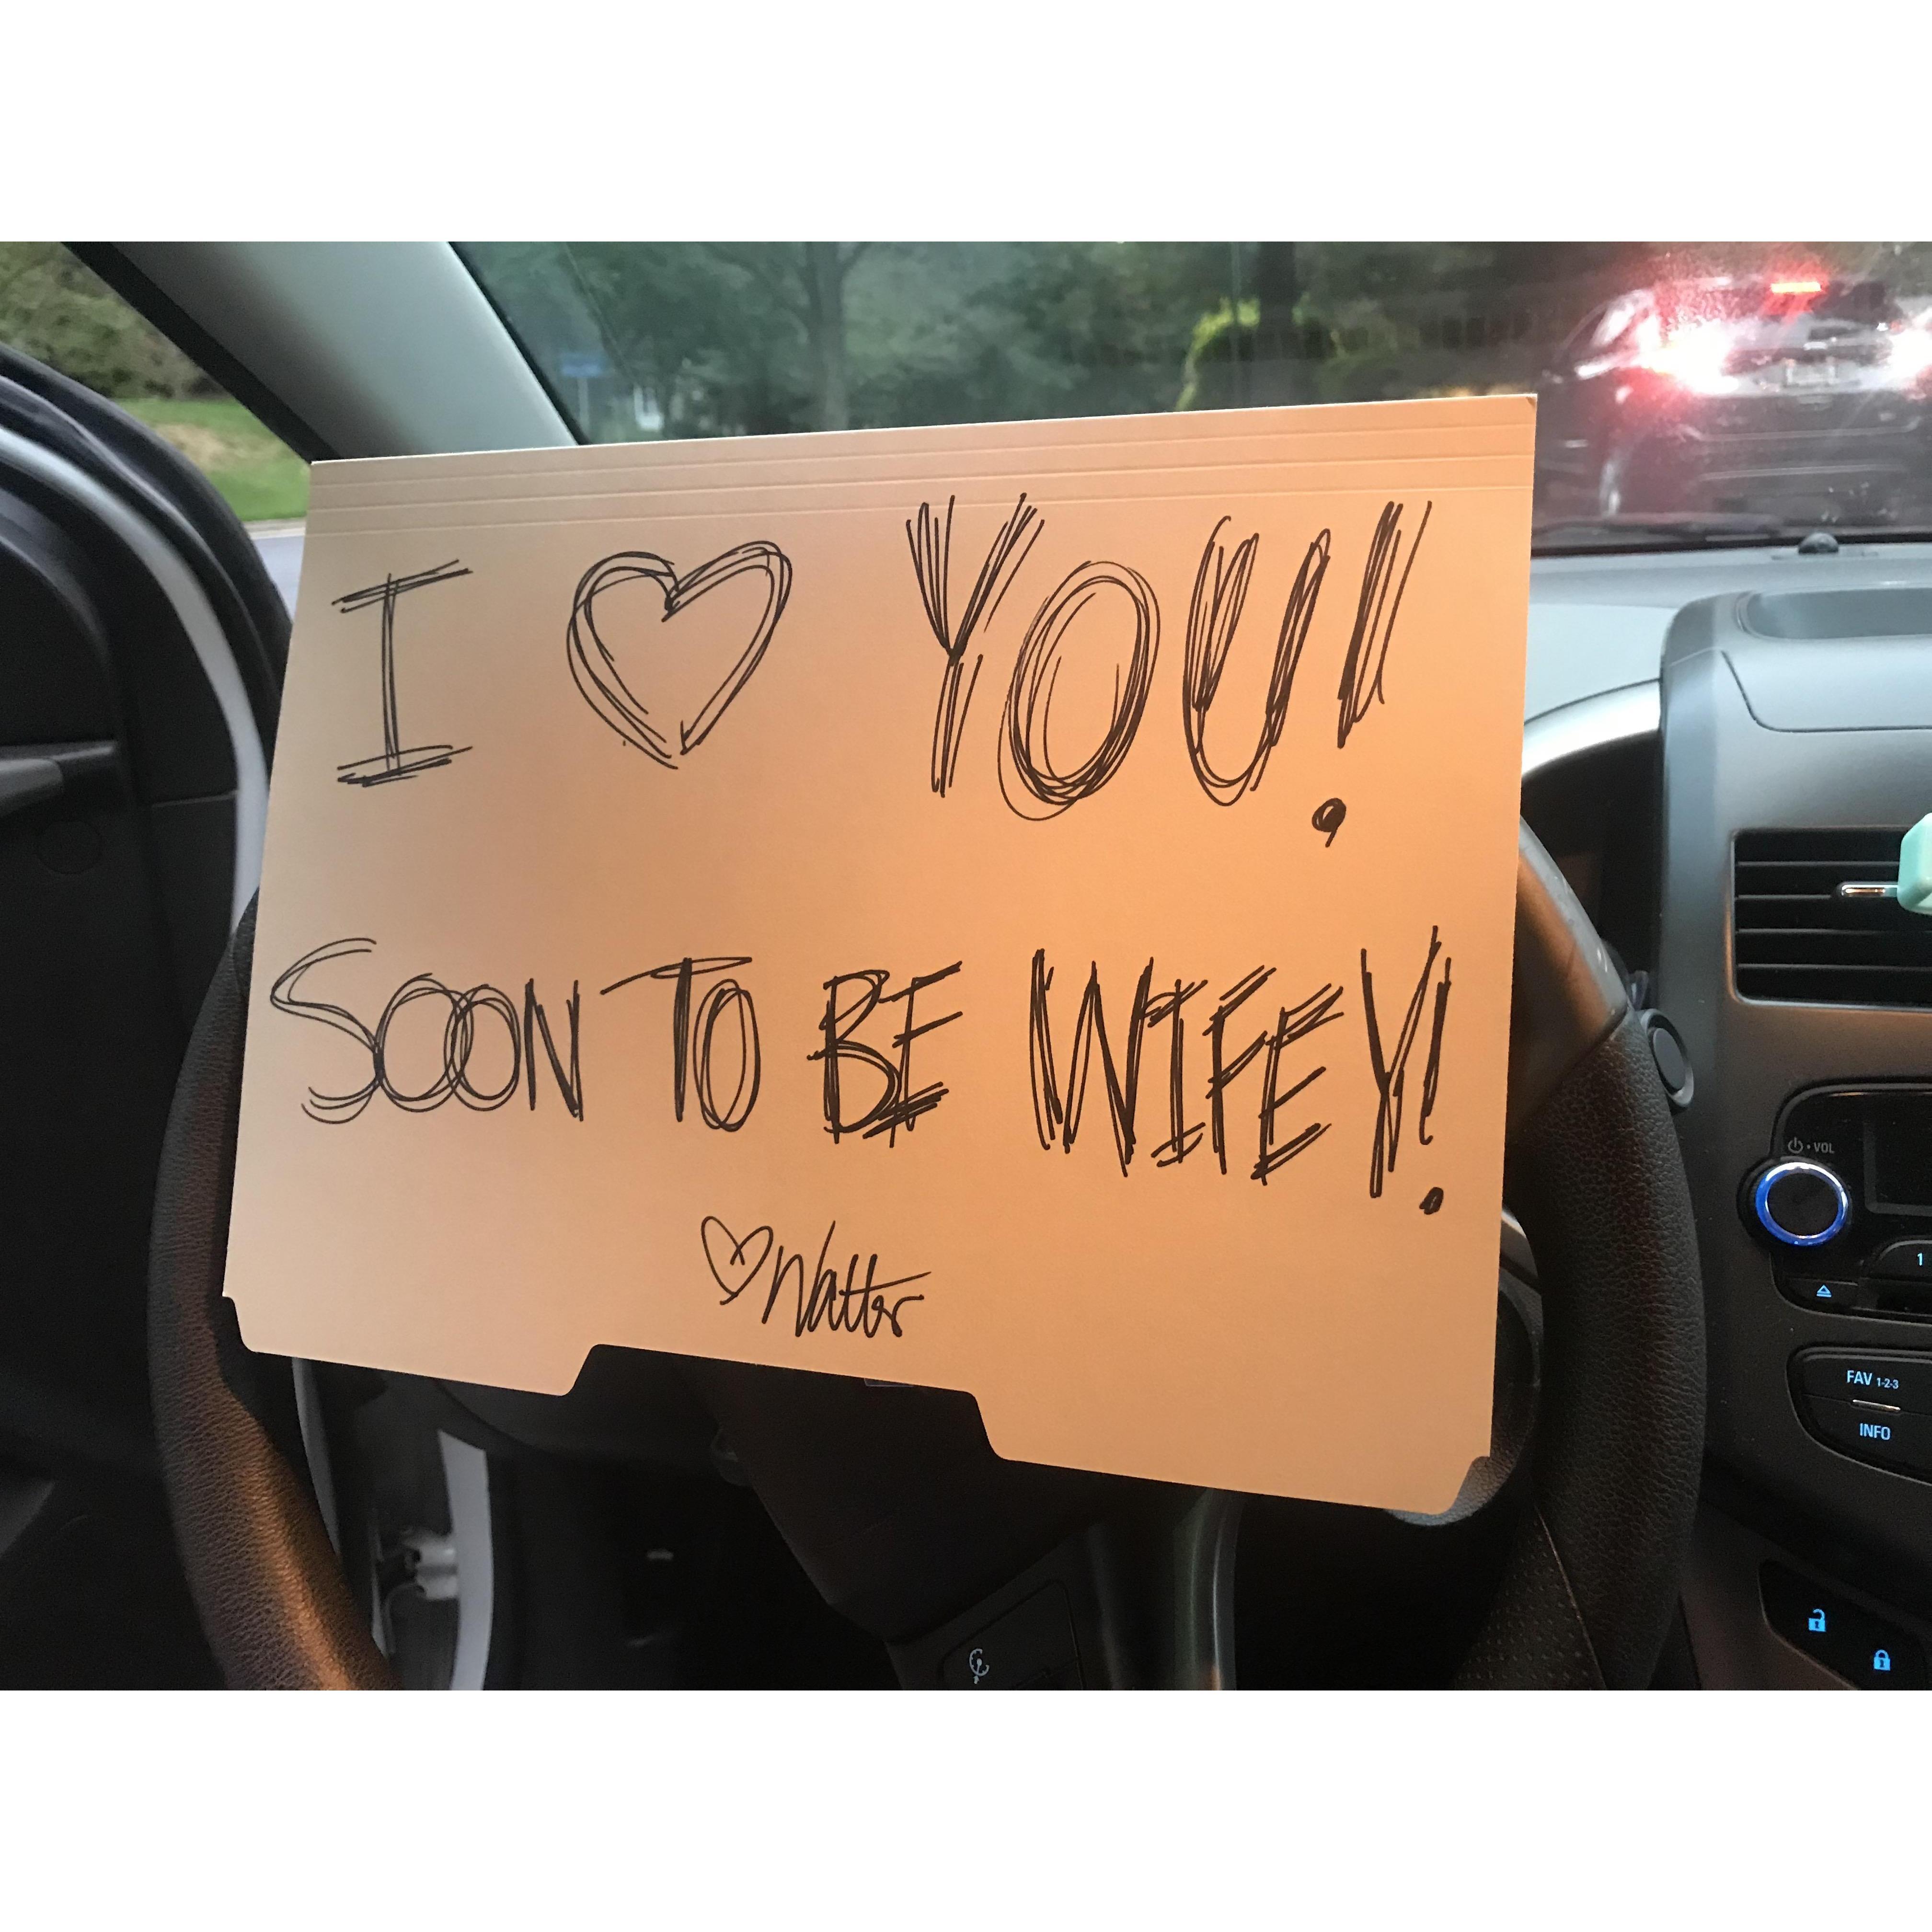 I ♡ YOU!
SOON TO BE WIFEY!
♡ Walter
VOL
1
FAV 1-2-3
INFO